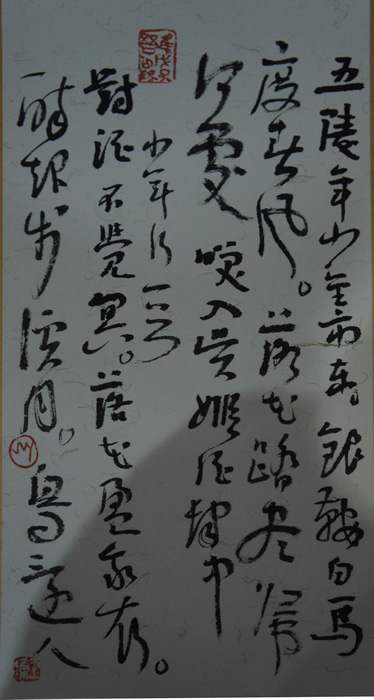 五陵年少金市東銀鞍白馬
度春风。落花踏尽歸
何處笑入吴姬酒肆中
少年行一首
對酒不覺冥。落花盈我衣。
醉起步溪月。鳥還人